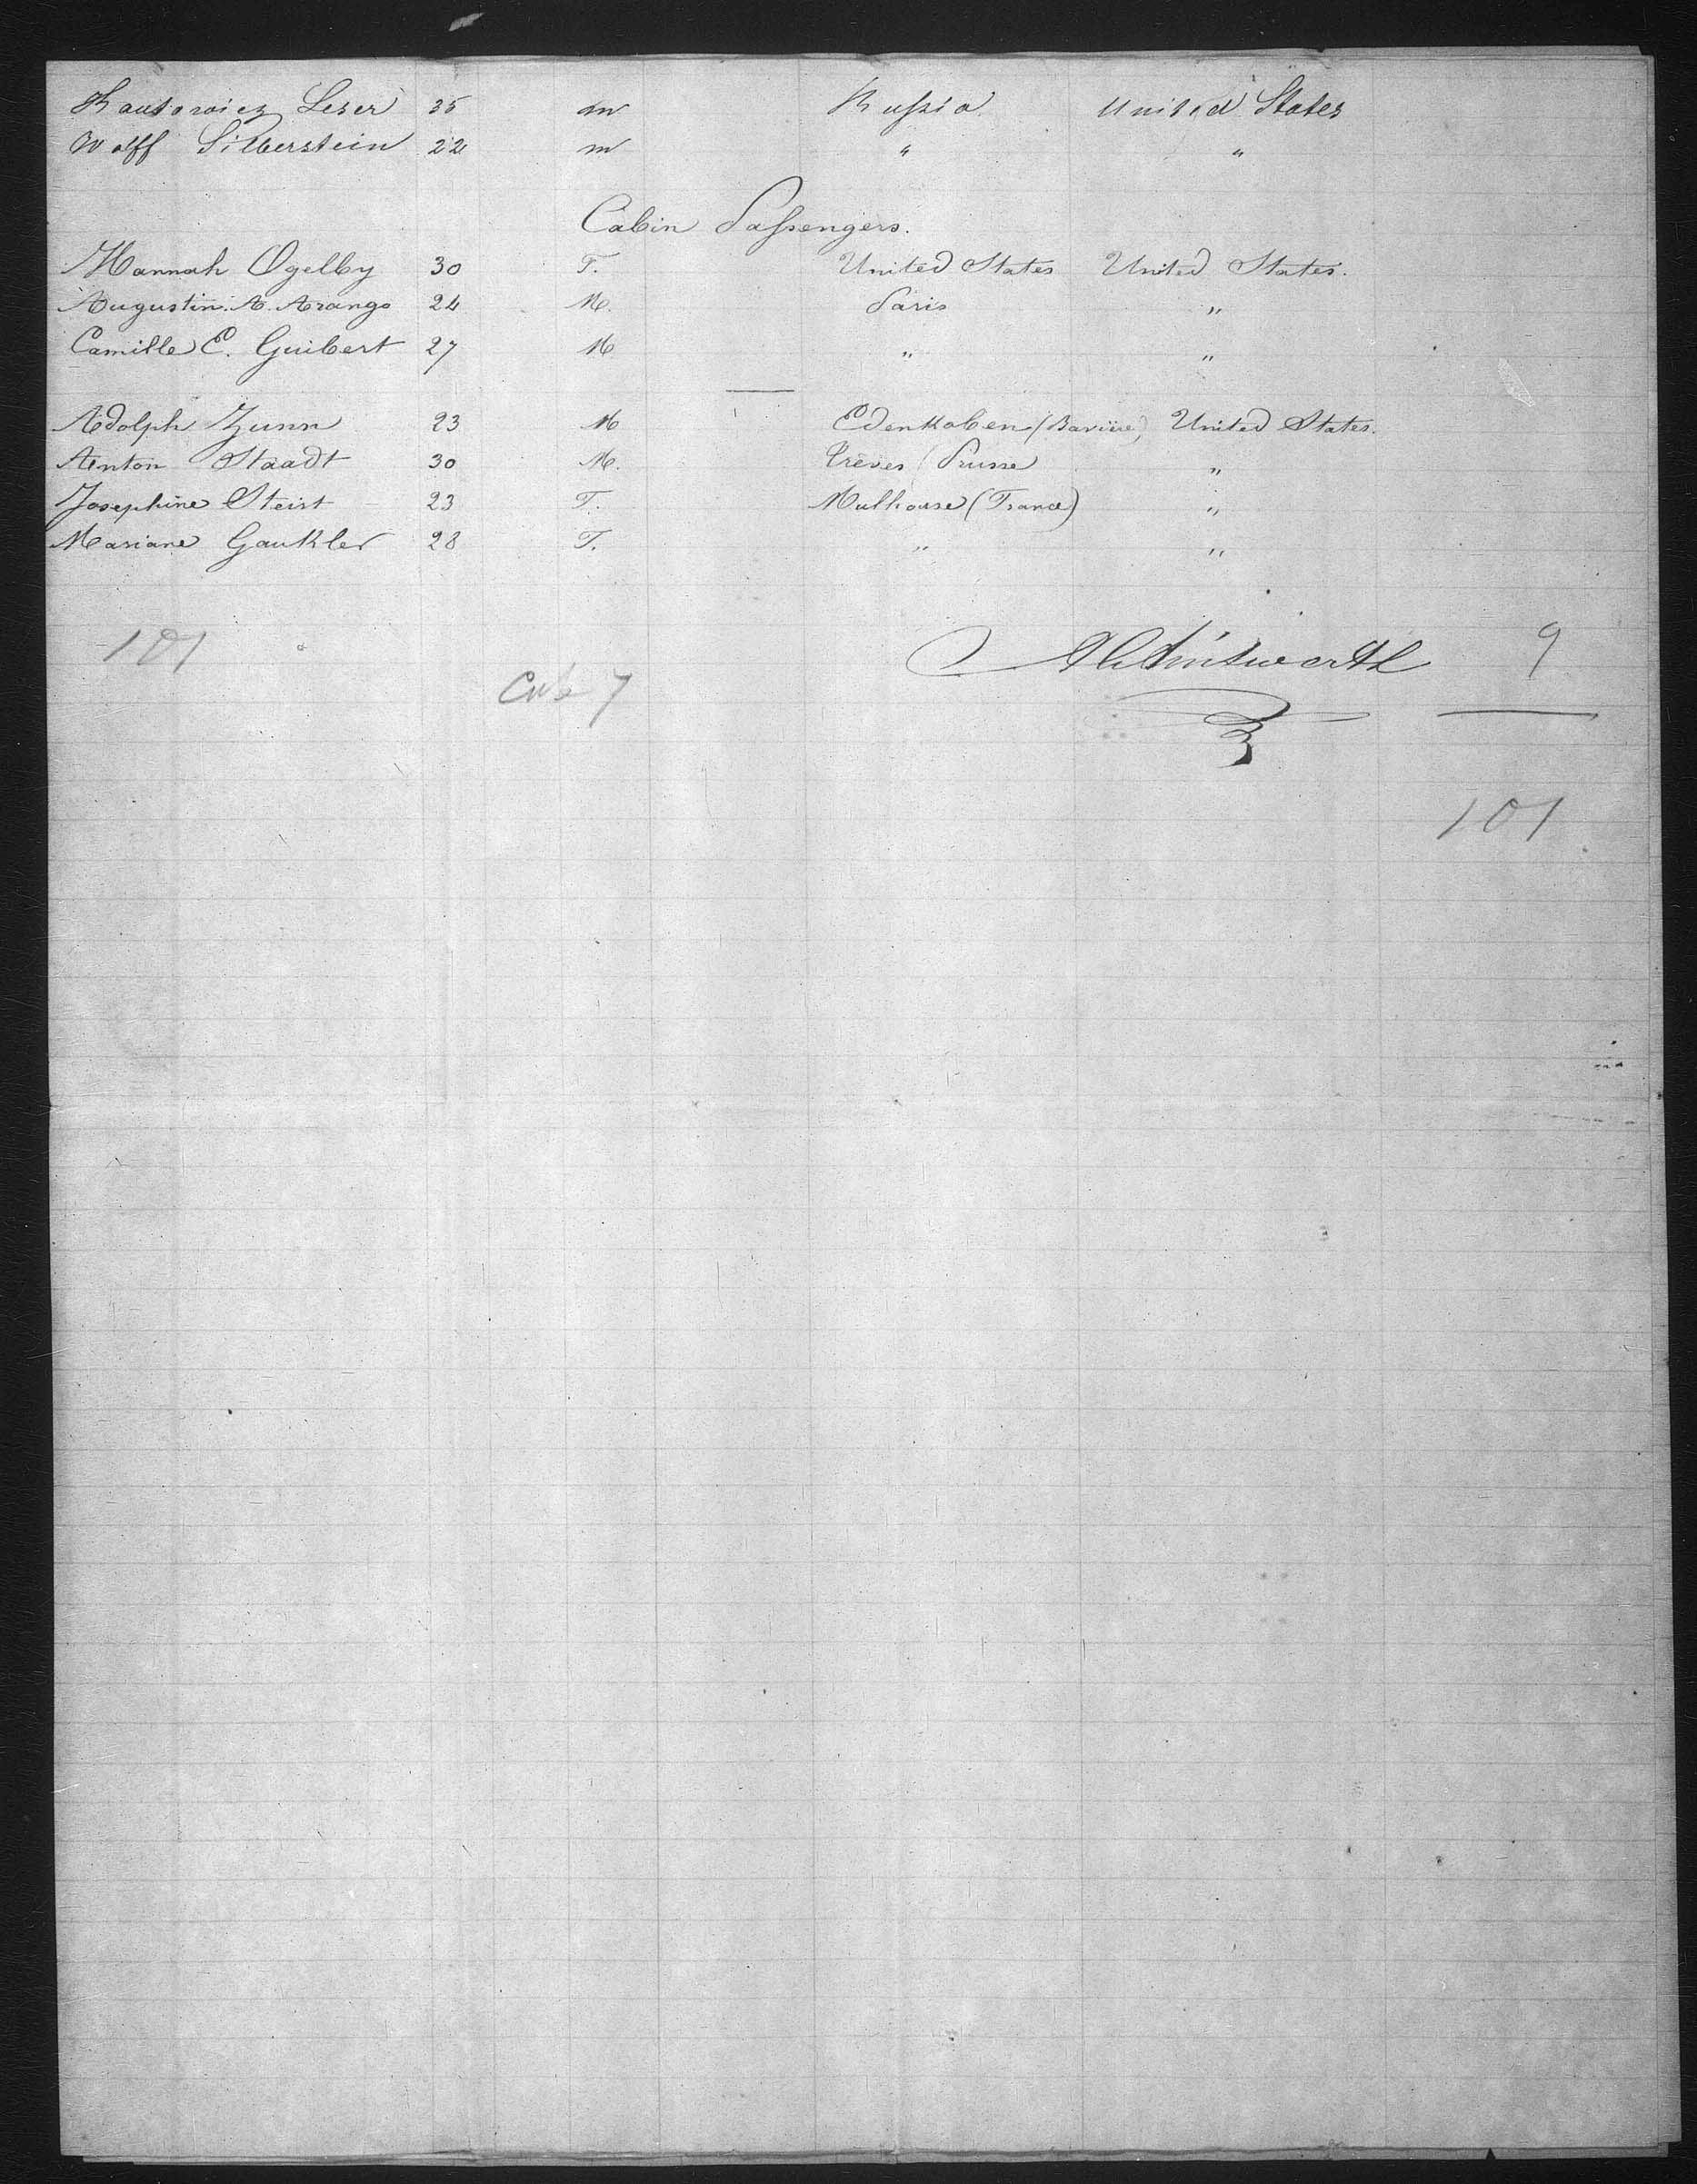 Kautorwicz Leser 35 m Russia United States
Wolff Silberstein 22 m " "
Cabin Passengers.
Hannah Ogelby 30 F. United States United States.
Augustin. A. Arango 24 M. Paris "
Camille E. Guibert 27 M " "
Adolph Zunn 23 M Edenkoben (Bavière) United States.
Anton Staadt 30 M. Trèves (Prusse "
Josephine Steist 23 F. Mulhouse (France) "
Mariane Gaukler 28 F. " "
101 9
Cab 7
101